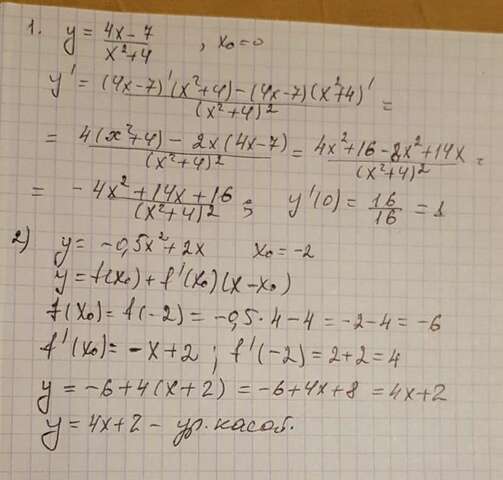 1. y = (4x-7)/(x²+4) , x₀=0
y' = ((4x-7)'(x²+4)-(4x-7)(x²+4)')/(x²+4)² =
= (4(x²+4)-2x(4x-7))/(x²+4)² = (4x²+16-8x²+14x)/(x²+4)² =
= (-4x²+14x+16)/(x²+4)² ; y'(0) = 16/16 = 1
2) y = -0,5x²+2x x₀=-2
y=f(x₀)+f'(x₀)(x-x₀)
f(x₀)=f(-2)=-0,5·4-4=-2-4=-6
f'(x₀)=-x+2; f'(-2)=2+2=4
y=-6+4(x+2)=-6+4x+8=4x+2
y=4x+2 - ур. касат.